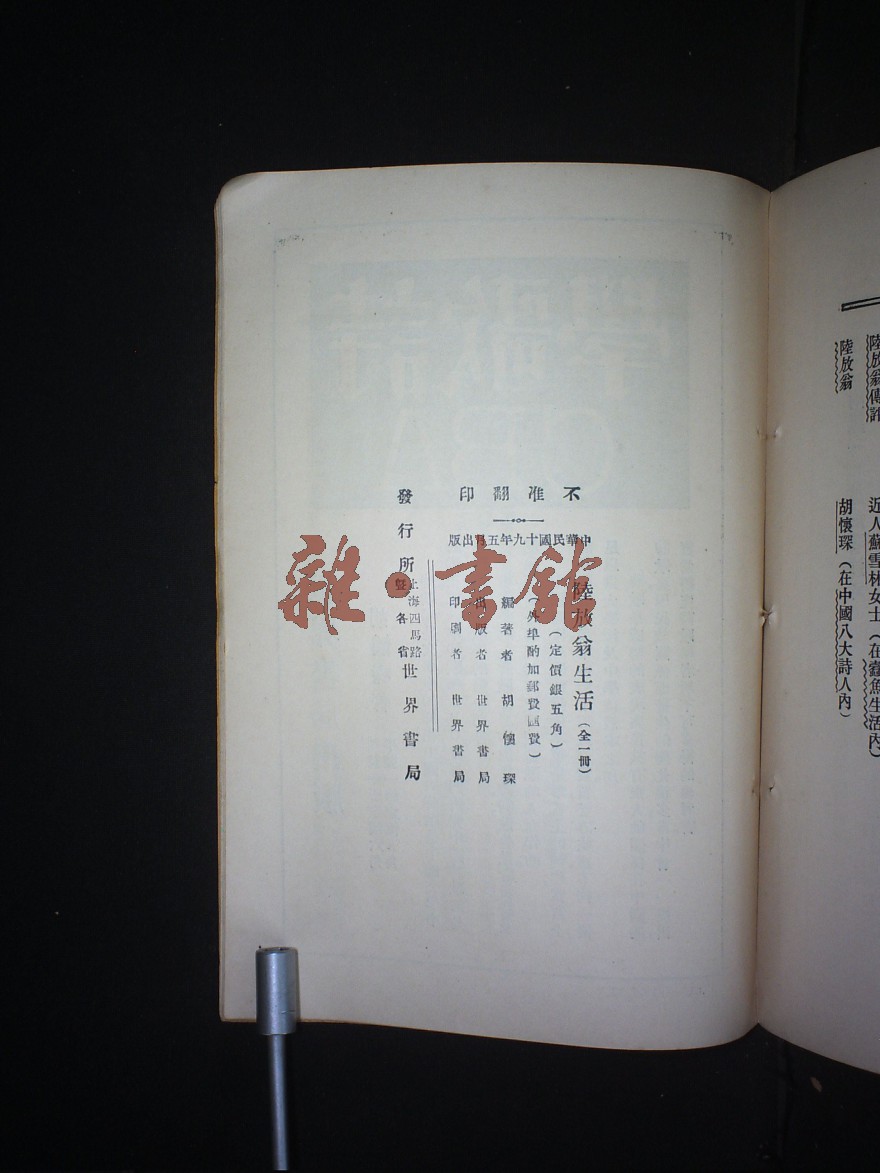 陸放翁傳評
近人蘇雪林女士（在蠹魚生活內）
陸放翁
胡懷琛（在中國八大詩人內）
不准翻印
中華民國十九年五月出版
陸放翁生活（全一冊）
（定價銀五角）
（外埠酌加郵費匯費）
編著者 胡懷琛
出版者 世界書局
印刷者 世界書局
發行所 上海四馬路暨各省 世界書局
雜·書館